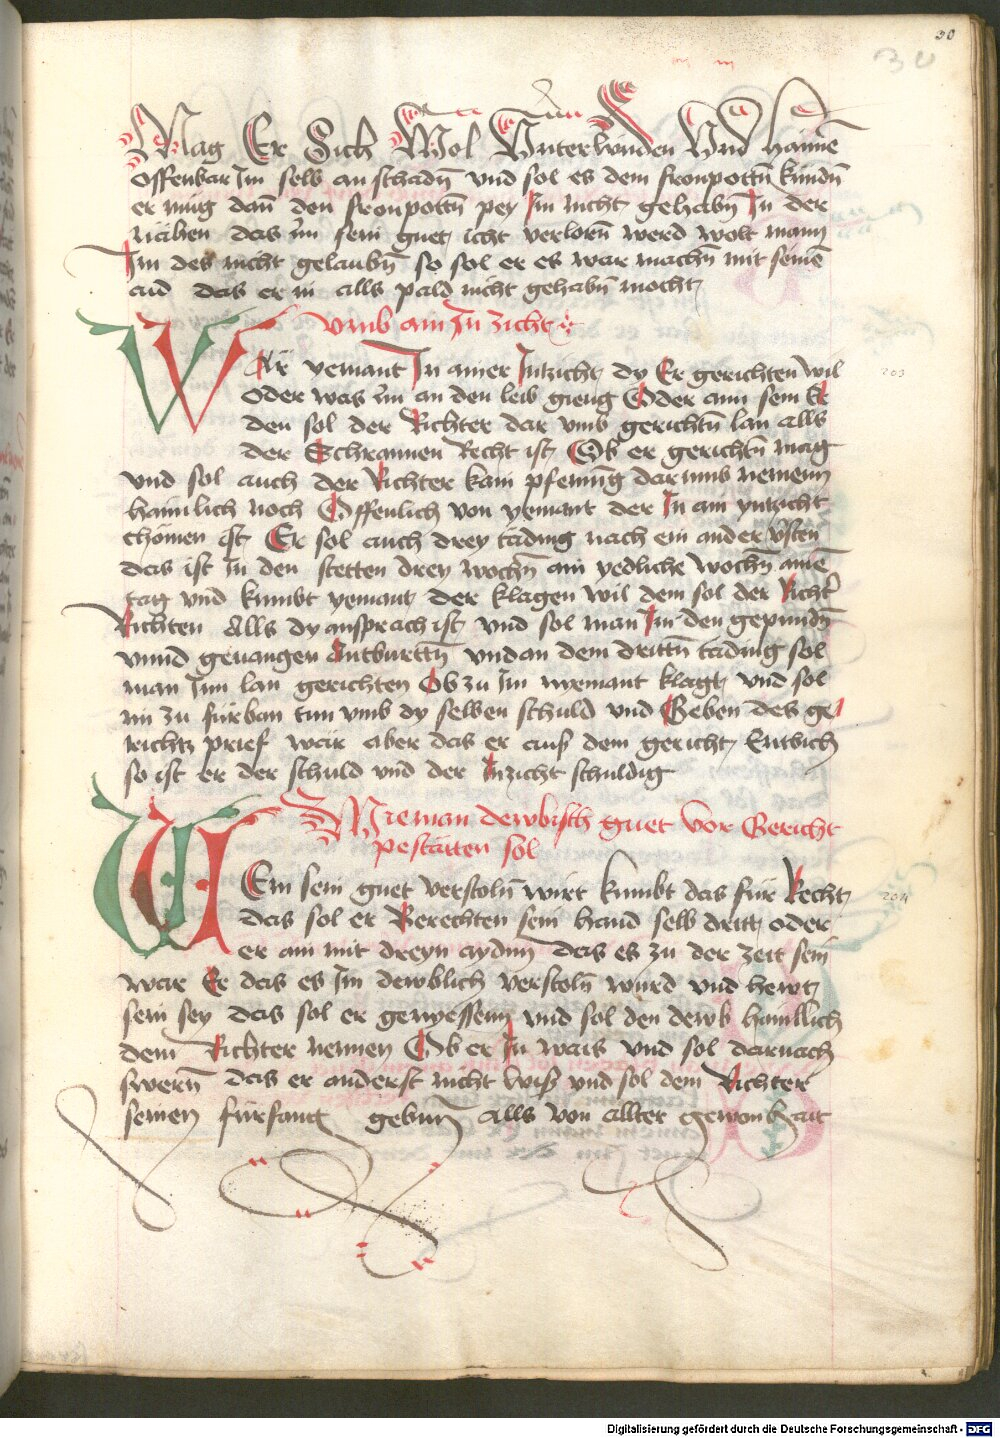 30
30
Mag Er Sich Wol Unterwinden Und haimē
offenbar Im selb an schadn̄ vnd sol es dem fronpottn̄ kündn̄
er müg dan̄ den fronpottn̄ pey Im nicht gehabn̄ In der
nähen das im sein guet icht verlorn̄ werd wolt mann
Im des nicht gelaubn̄ so sol er es war machn̄ mit seinē
aid das er in alls pald nicht gehabn̄ mocht
Vmb ain In zicht
WÄr yemant In ainer Intzicht dy Er gerichten wil
203
oder was im an den leib gieng Oder ann sein Er
den sol der Richter dar vmb gerichtn̄ lan alls
der Schrannen Recht ist Ob er gerichtn̄ mag
vnd sol auch der Richter kain pfenning darumb nemenn
haimlich noch Offenlich von yemant der In ain yntzicht
chömen ist Er sol auch drey täding nach ein ander
das ist In den stetten drey wochn̄ ain yedliche wochn̄ ainē
tag vnd kumbt yemant der klagen wil dem sol der Richt
Richten Alls dy ansprach ist vnd sol man Im den gepundn̄
vnnd geuangen Antburttn̄ vnd an dem drittn̄ täding sol
man Im lan gerichten Ob zu Im nyemant klagt vnd sol
in zu fürban tun vmb dy selben schuld vnd Geben des ge
richtz prief wär aber das er aus dem gericht Entwich
so ist er der schuld vnd der Inzicht schuldig
Wie man dewbisch guet Vor Gericht
pestätten sol
WEm sein guet verstoln̄ wirt kumbt das für Recht
204
das sol er Berechten sein hand selb dritt oder
er ain mit dreyn aydnn das es zu der zeit sein
war Ee das es Im dewblich verstoln̄ wurd vnd hewt
sein sey das sol er genyessenn vnd sol den dewb haimlich
dem Richter nennen Ob er In wais vnd sol darnach
swern̄ das er anderst nicht wiß vnd sol dem Richter
seinen fürfang gebnn Alls von allter gewonhait
Digitalisierung gefördert durch die Deutsche Forschungsgemeinschaft - DFG